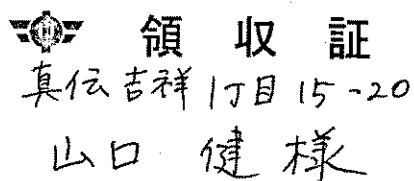 領収証
真伝吉祥1丁目15-20
山口 健様